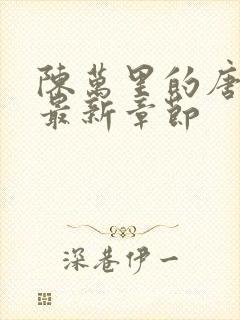 陳萬里的唐
最新章節
深巷伊一